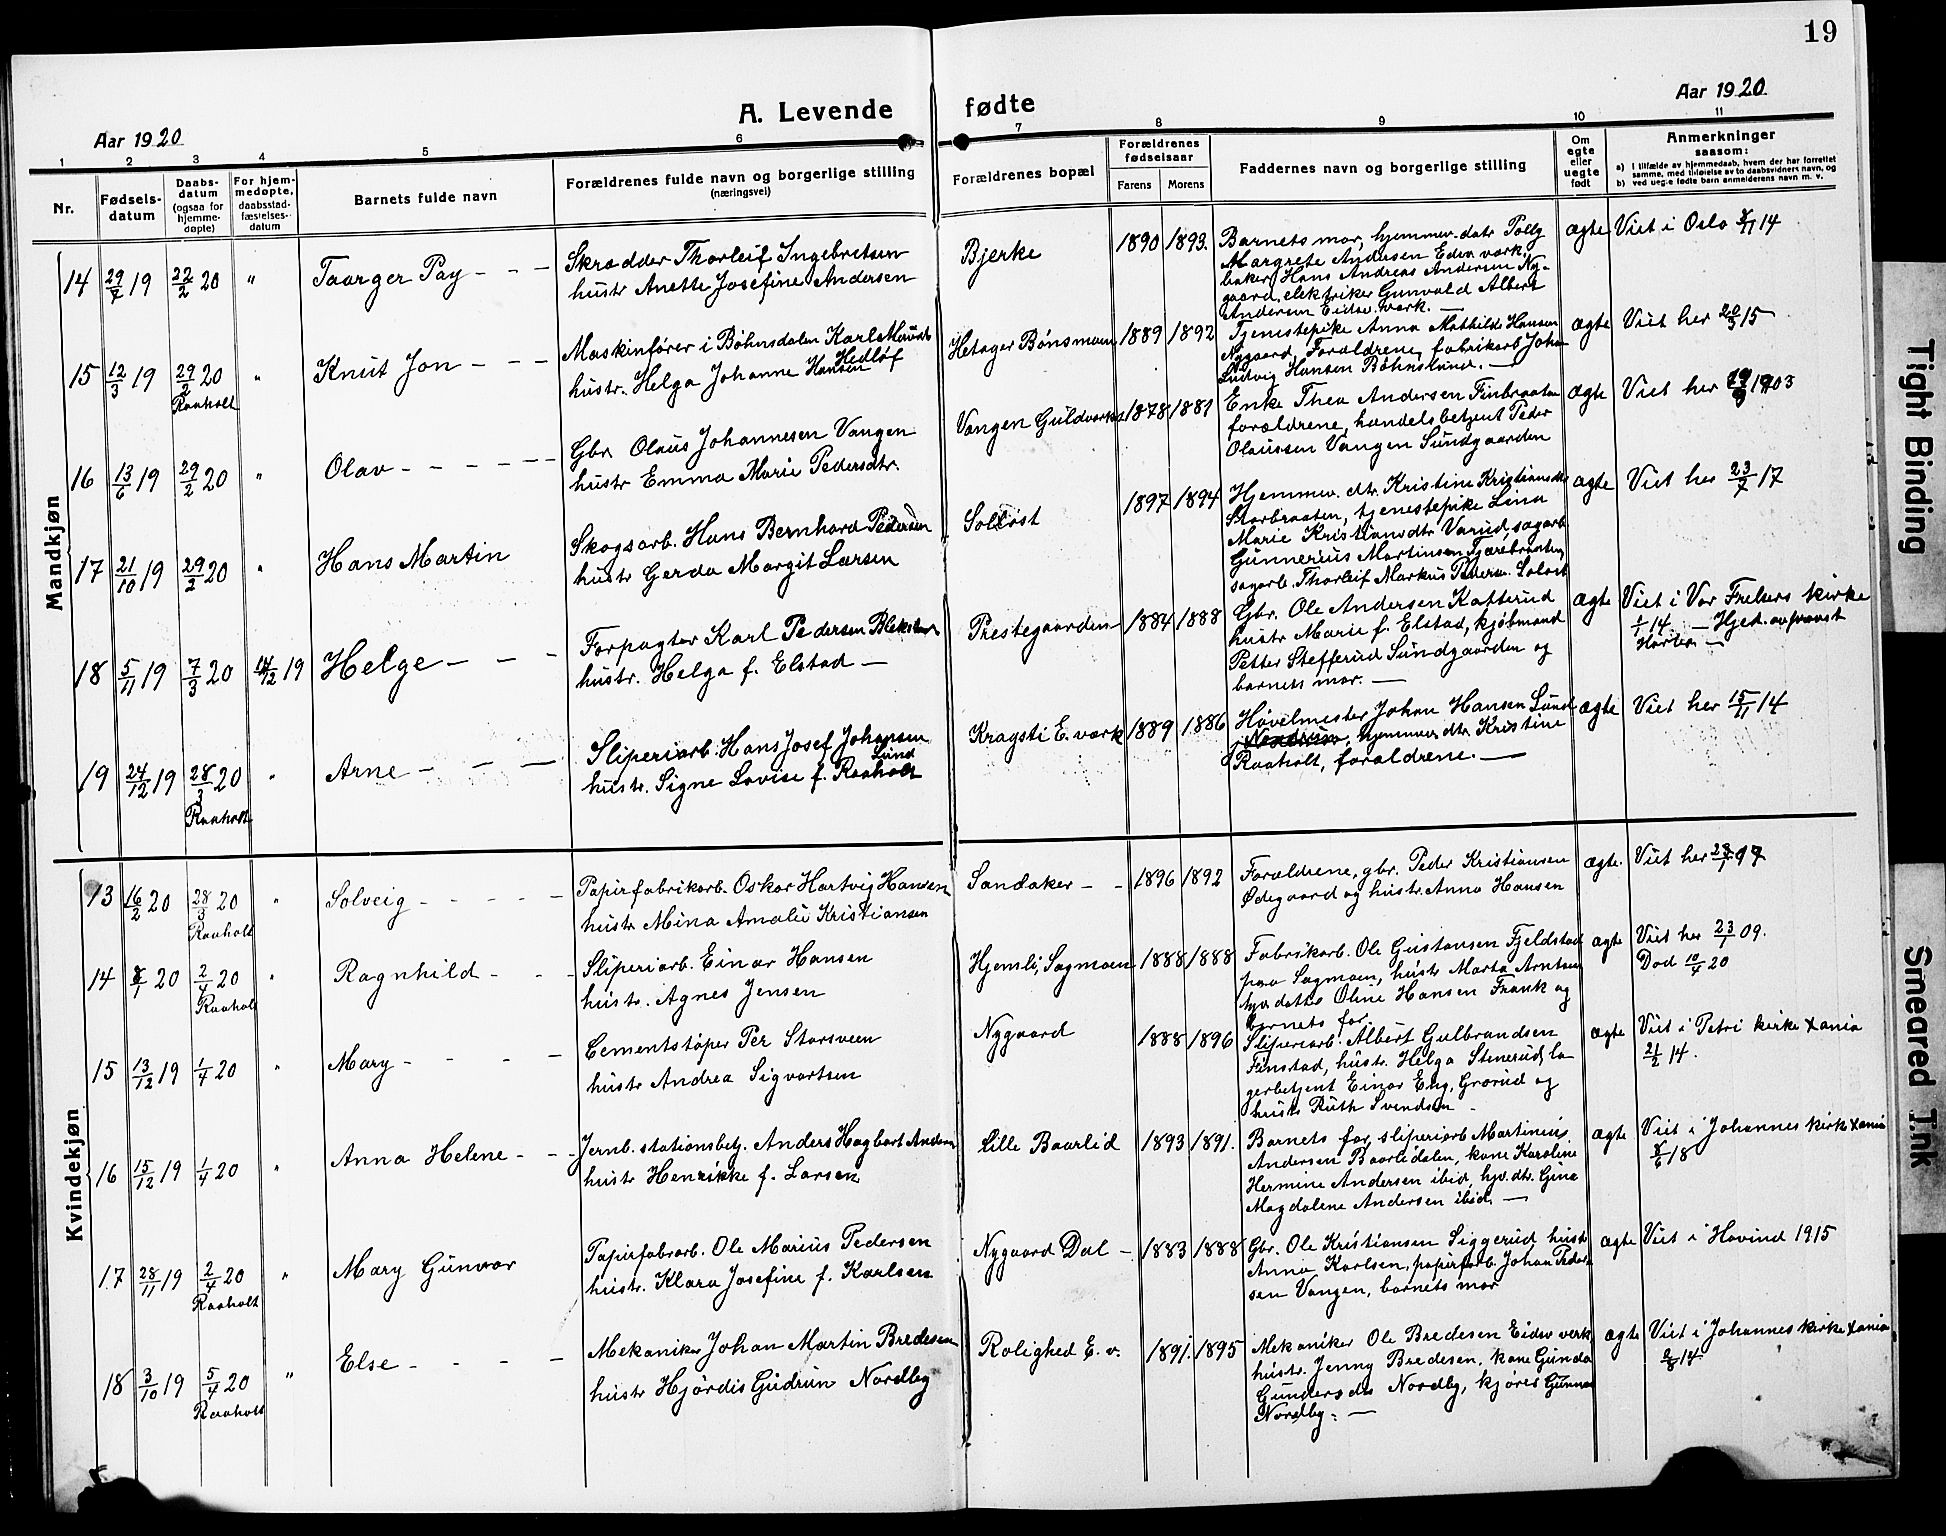 19
Aar 1920
A. Levende fødte
Aar 1920
1 2 3 4 5 6 7 8 9 10 11
Nr.
Fødsels-
datum
Daabs-
datum
(ogsaa for
hjemme-
døpte)
For hjem-
medøpte,
daabsstad-
fæstelses-
datum
Barnets fulde navn
Forældrenes fulde navn og borgerlige stilling
(næringsvei)
Forældrenes bopæl
Forældrenes
fødselsaar
Farens Morens
Faddernes navn og borgerlige stilling
Om
egte
eller
uegte
født
Anmerkninger
saasom:
a) I tilfælde av hjemmedaab, hvem der har forrettet
samme, med tilføielse av to daabsvidners navn, og
b) ved uegte fødte barn anmelderens navn m. v.
Mandkjøn
14 29/7 19 22/2 20 " Taarger Pay - - -
Skrædder Thorleif Ingebretsen
hustr Anette Josefine Andersen
Bjerke 1890 1893.
Barnets mor, hjemmev. datr Polly
Margrete Andersen Eidsv værk,
baker Hans Andreas Andersen Ny-
gaard, elektriker Gunvald Albert
Andersen Eidsv. værk. —
ægte Viet i Oslo 8/11 14
15 12/3 19 29/2 20 " Knut Jon - - -
Raaholt
Maskinfører i Bøhnsdalen Karl Mauritz
Hedløf
hustr. Helga Johanne Hansen
Hetager Bønsmoen 1889 1892
Tjenestepike Anna Mathilde Hansen
Nygaard, Forældrene, fabrikarb Johan
Ludvig Hansen Bøhnslunn. —
ægte Viet her 20/3 15
16 13/6 19 29/2 20 " Olav - - - - - -
Gbr. Olaus Johannesen Vangen
hustr Emma Marie Pedersdtr.
Vangen Guldverket 1878 1881
Enke Thea Andersen Finbraaten
forældrene, handelsbetjent Peder
Olaussen Vangen Sundgaarden
ægte Viet her 1903
17 21/10 19 29/2 20 " Hans Martin
Skogsarb. Hans Bernhard Pedersen
hustr Gerda Margit Larsen
Soløst 1897 1894
Hjemmev. dtr. Kristine Kristiansdtr
Storbraaten, tjenestepike Lina
Marie Kristiansdtr Varud, sagarb
Gunnerius Martinsen Tjærebraaten,
sagarb. Thorleif Markus Peders. Soløst
ægte Viet her 23/7 17
18 5/11 19 7/3 20 14/12 19 Helge - - -
Forpagter Karl Pedersen Blekstad
hustr. Helga f. Elstad —
Prestegaarden 1884 1888
Gbr. Ole Andersen Katterud
hustr Marie f. Elstad, kjøbmand
Petter Stefferud Sundgaarden og
barnets mor. —
ægte Viet i Vor Frelsers kirke
1/1 14. — Hjed. av provst
19 24/12 19 28/3 20 " Arne - - -
Raaholt
Sliperiarb. Hans Josef Johansen
Lund
hustr. Signe Lovise f. Raaholt
Kragsti E. værk 1889 1886
Høvelmester Johan Hansen Lund
hjemmev dtr Kristine
Raaholt, forældrene. —
ægte Viet her 15/11 14
Kvindekjøn
13 16/2 20 28/3 20 " Solveig - - - - -
Raaholt
Papirfabrikarb. Oskar Hartvig Hansen
hustr Mina Amalie Kristiansen
Sandaker - - 1896 1892
Forældrene, gbr. Peder Kristiansen
Ødegaard og hustr. Anna Hansen
ægte. Viet her
14 8/1 20 2/4 20 " Ragnhild - - -
Raaholt
Sliperiarb. Einar Hansen
hustr. Agnes Jensen
Hjemli, Sagmoen 1888 1888
Fabrikarb. Ole Gustavsen Fjeldstad
paa Sagmoen, hustr Marta Arntsen
hjv. datter Oline Hansen Frank og
barnets far.
ægte Viet her 23/1 09.
Død 10/4 20
15 13/12 19 1/4 20 " Mary - - - -
Cementstøper Per Storsveen
hustr Andrea Sigvartsen
Nygaard 1888 1896
Sliperiarb. Albert Gulbrandsen
Finstad, hustr. Helga Stenerud, la-
gerbetjent Einar Eng, Grorud og
hustr Ruth Svendsen -
ægte Viet i Petri kirke Xania
21/2 14.
16 15/12 19 1/4 20 " Anna Helene - - -
Jernb. stationsbetj. Anders Hagbart Andersen
hustr Henrikke f. Larsen
Lille Baarlid 1893 1891.
Barnets far, sliperiarb Martinius
Andersen Baarlidalen, kone Karoline
Hermine Andersen ibid, hjv. dtr. Gina
Magdalene Andersen ibid. —
ægte Viet i Johannes kirke Xania
8/6 18
17 28/11 19 2/4 20 " Mary Gunvor
Raaholt
Papirfabrarb. Ole Marius Pedersen
hustr. Klara Josefine f. Karlsen
Nygaard Dal - 1883 1888
Gbr. Ole Kristiansen Siggerud hustr
Anna Karlsen, papirfarb. Johan Peder-
sen Vangen, barnets mor
ægte Viet i Hovind 1915
18 3/10 19 5/4 20 " Else - - - -
Raaholt
Mekaniker Johan Martin Bredesen
hustr Hjørdis Gudrun Nordby
Rolighed E. v. 1891. 1895
Mekaniker Ole Bredesen Eidsv verk,
hustr. Jenny Bredesen, kone Gunda
Gundersdtr Nordby, kjører Gunnar
Nordby. —
ægte Viet i Johannes kirke Xania
2/8 14
Tight Binding
Smeared Ink